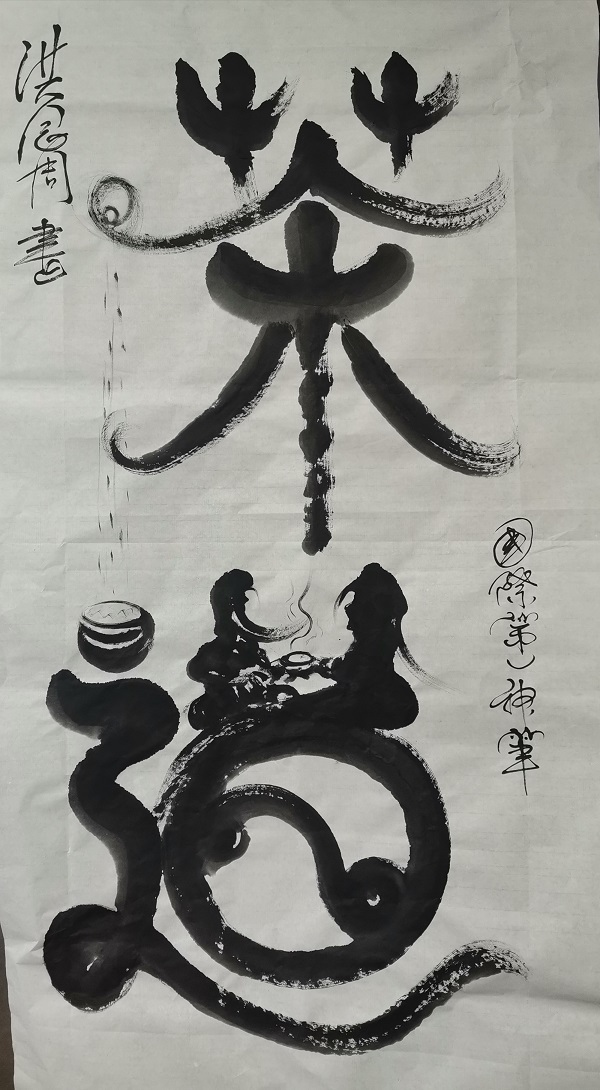 茶道
国際第一神筆
洪居周 書